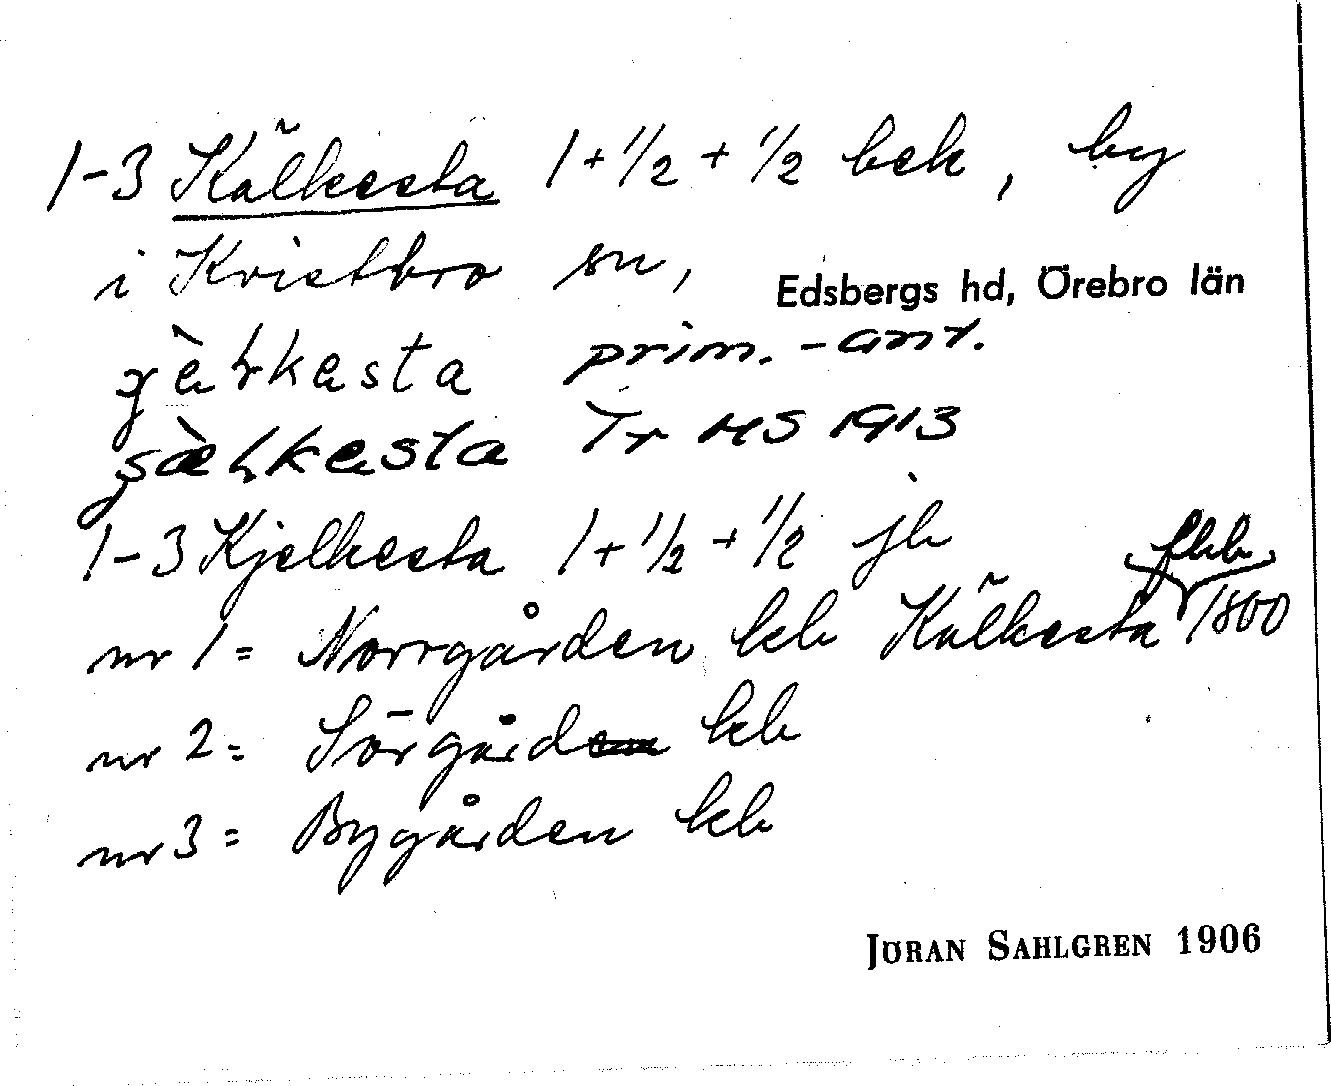 1-3 Kälkesta 1+1/2+1/2 bek, by
i Kvistbro sn, Edsbergs hd, Örebro län
prim.-ant.
Tr HS 1913
1-3 Kjelkesta 1+1/2+1/2 jb
nr 1 = Norrgården kb Kälkesta flkb 1800
nr 2 = Sörgården kb
nr 3 = Bygården kb
JÖRAN SAHLGREN 1906